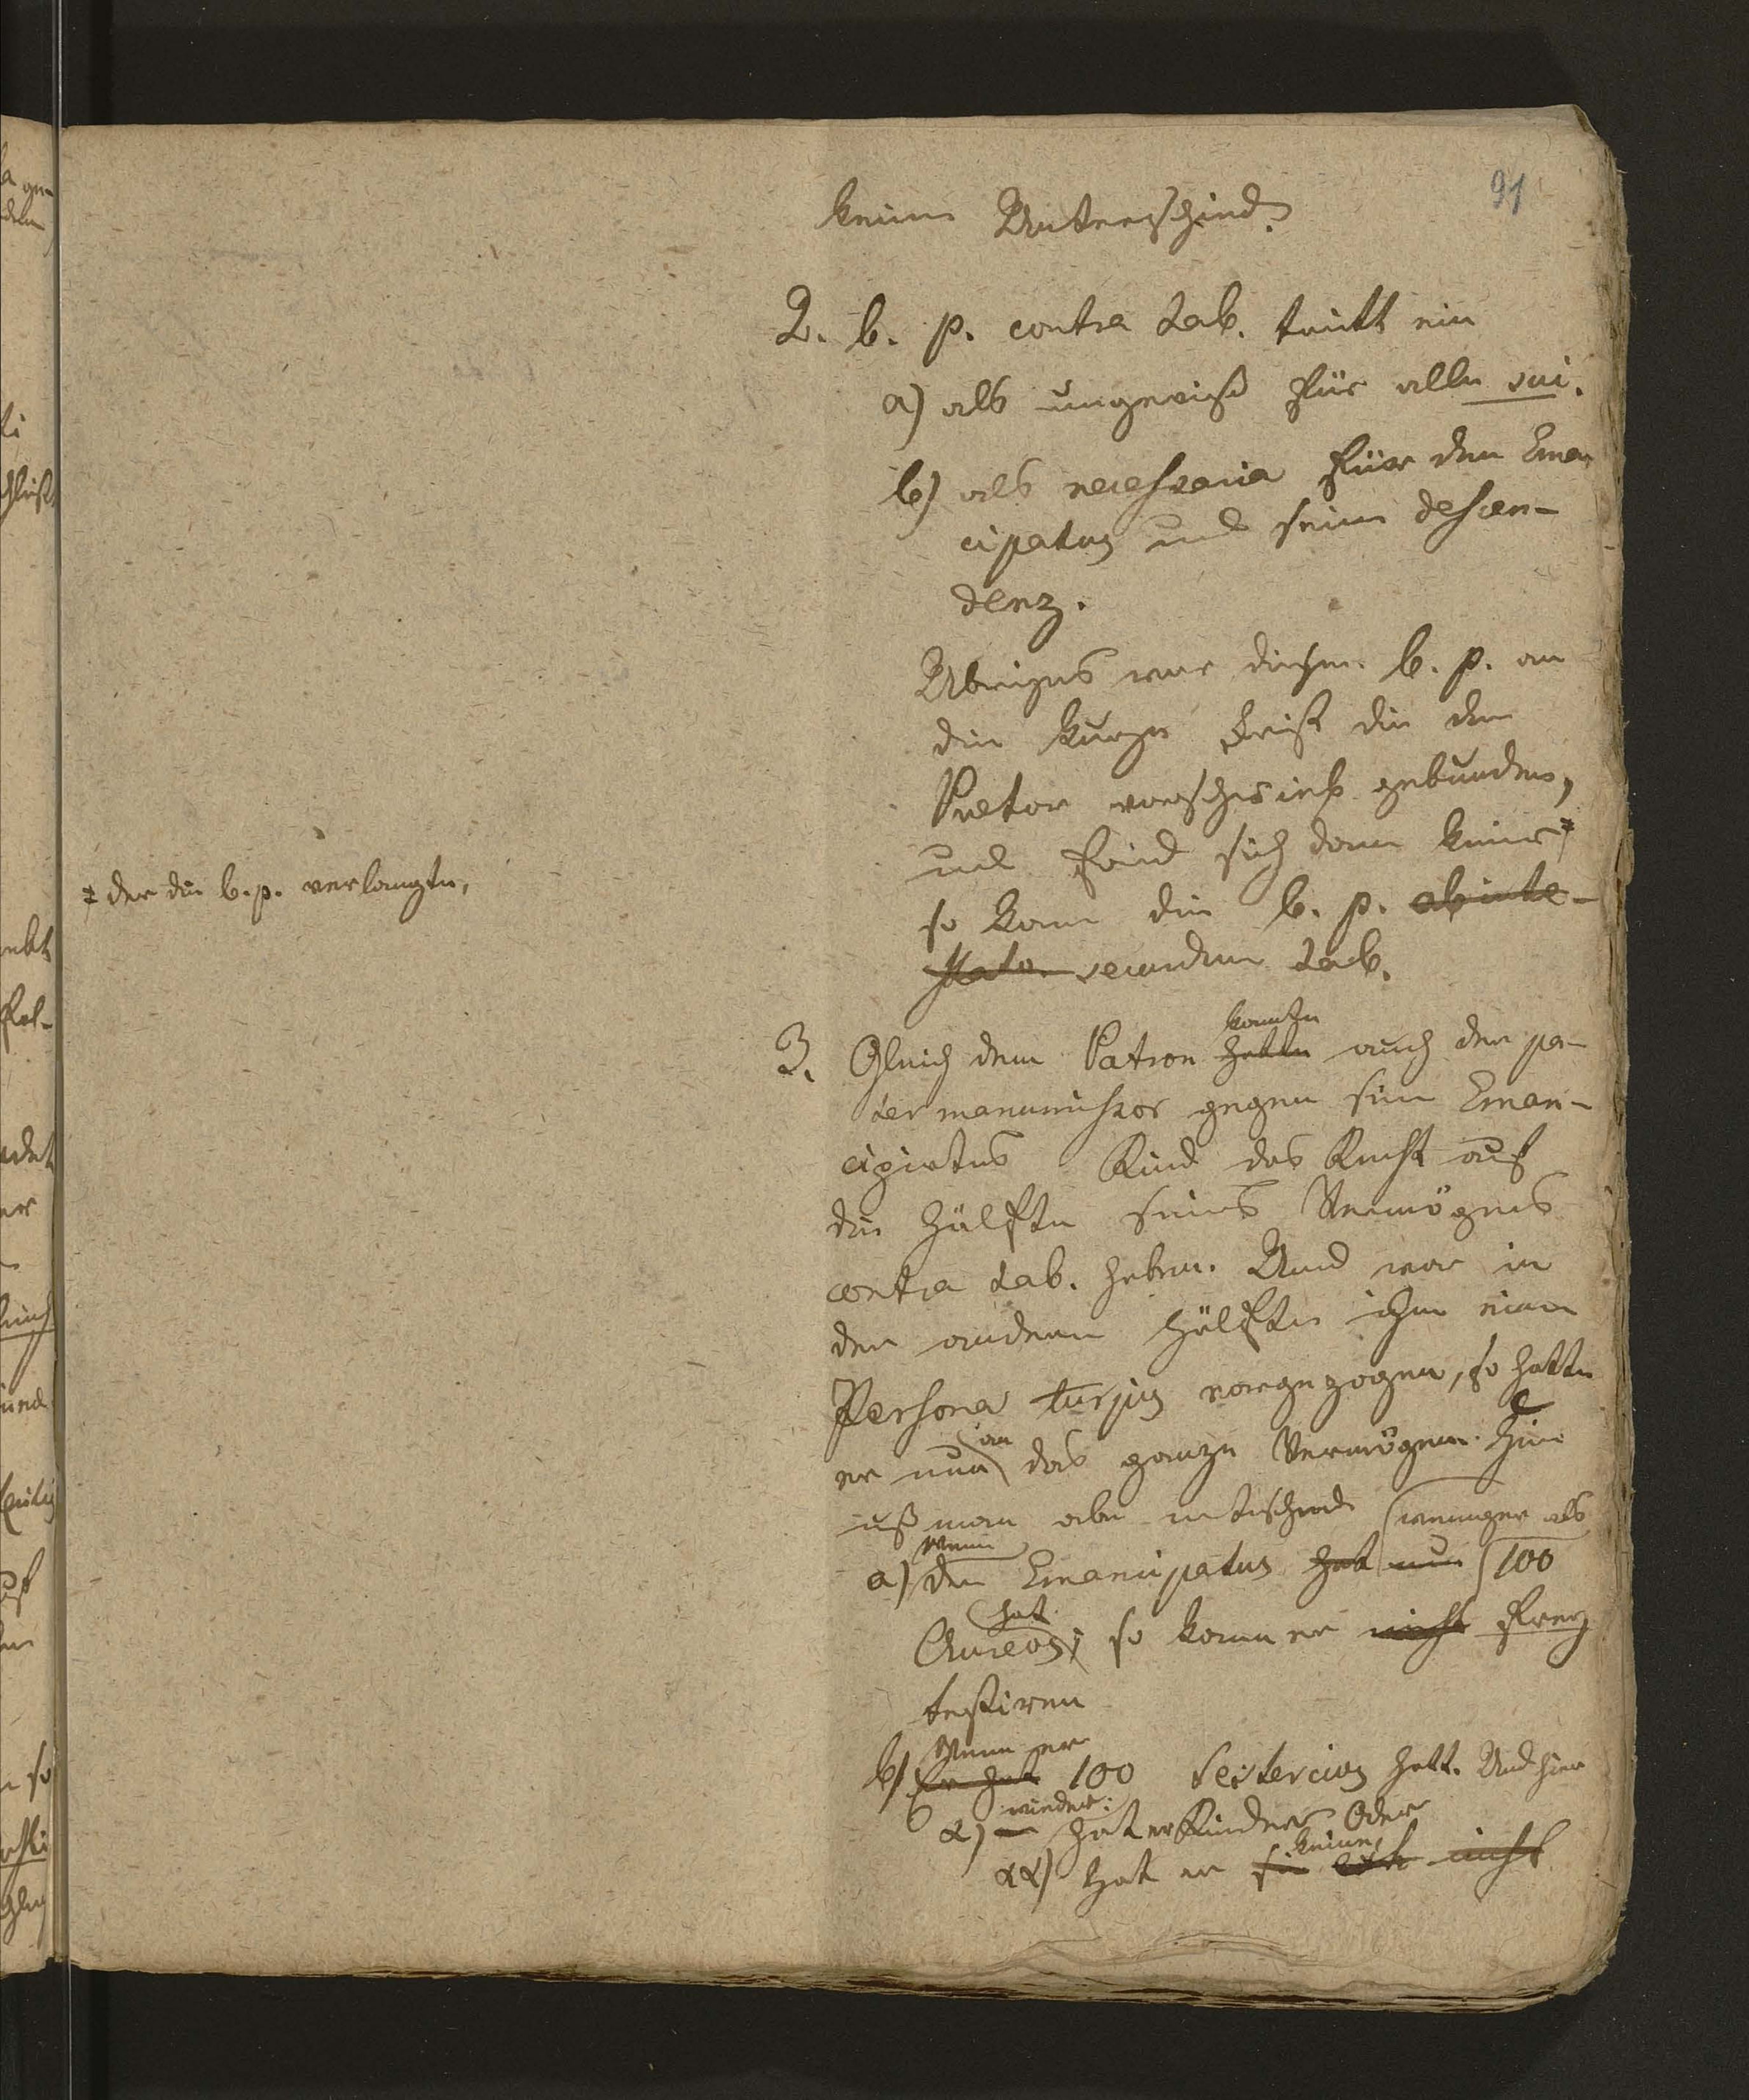 91
keinen Unterschied.
2. b. p. contra tab. tritt ein
a) als ungewiße für alle sui.
b) als necessaria für den Eman
cipatus und seine descen-
denz.
Ubrigens war diese b. p. an
die kurze Frist die der
Praetor vorschrieb gebunden,
und fand sich dann keiner ≠
≠ der die b. p. verlangte,
so kam die b. p. ab inte-
stato secundum tab.
3. Gleich dem Patron hatte konnte auch der pa-
ter manumissor gegen sein Eman-
cipirtes Kind das Recht auf
die Hälfte seines Vermögens
contra tab. haben. Und war in
der andern Hälfte ihm eine
Persona turpis vorgezogen, so hatte
er nun an das ganze Vermögen. Hier
uß man aber unterscheiden
a) Wenn der Emancipatus hat nur weniger als 100
Aureos hat, so kann er nicht frey
testiren
b) Er hat Wenn er 100 Sestercius hatt. Und hier
α) wieder: hat er Kinder Oder
αα) hat er sie keine nicht